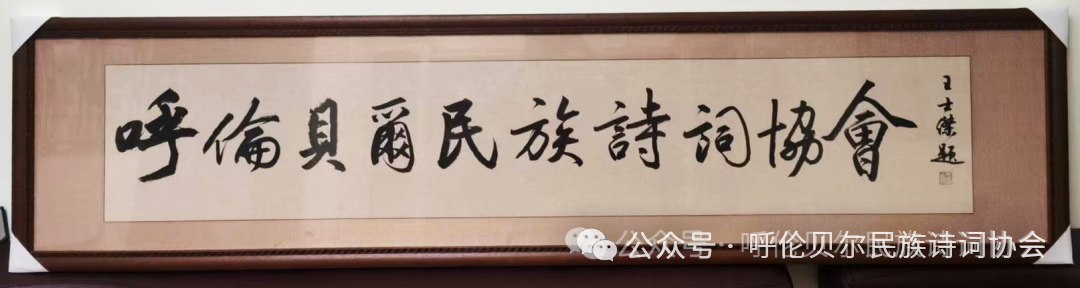 呼倫貝爾民族詩詞協會
王士傑題
公众号·呼伦贝尔民族诗词协会